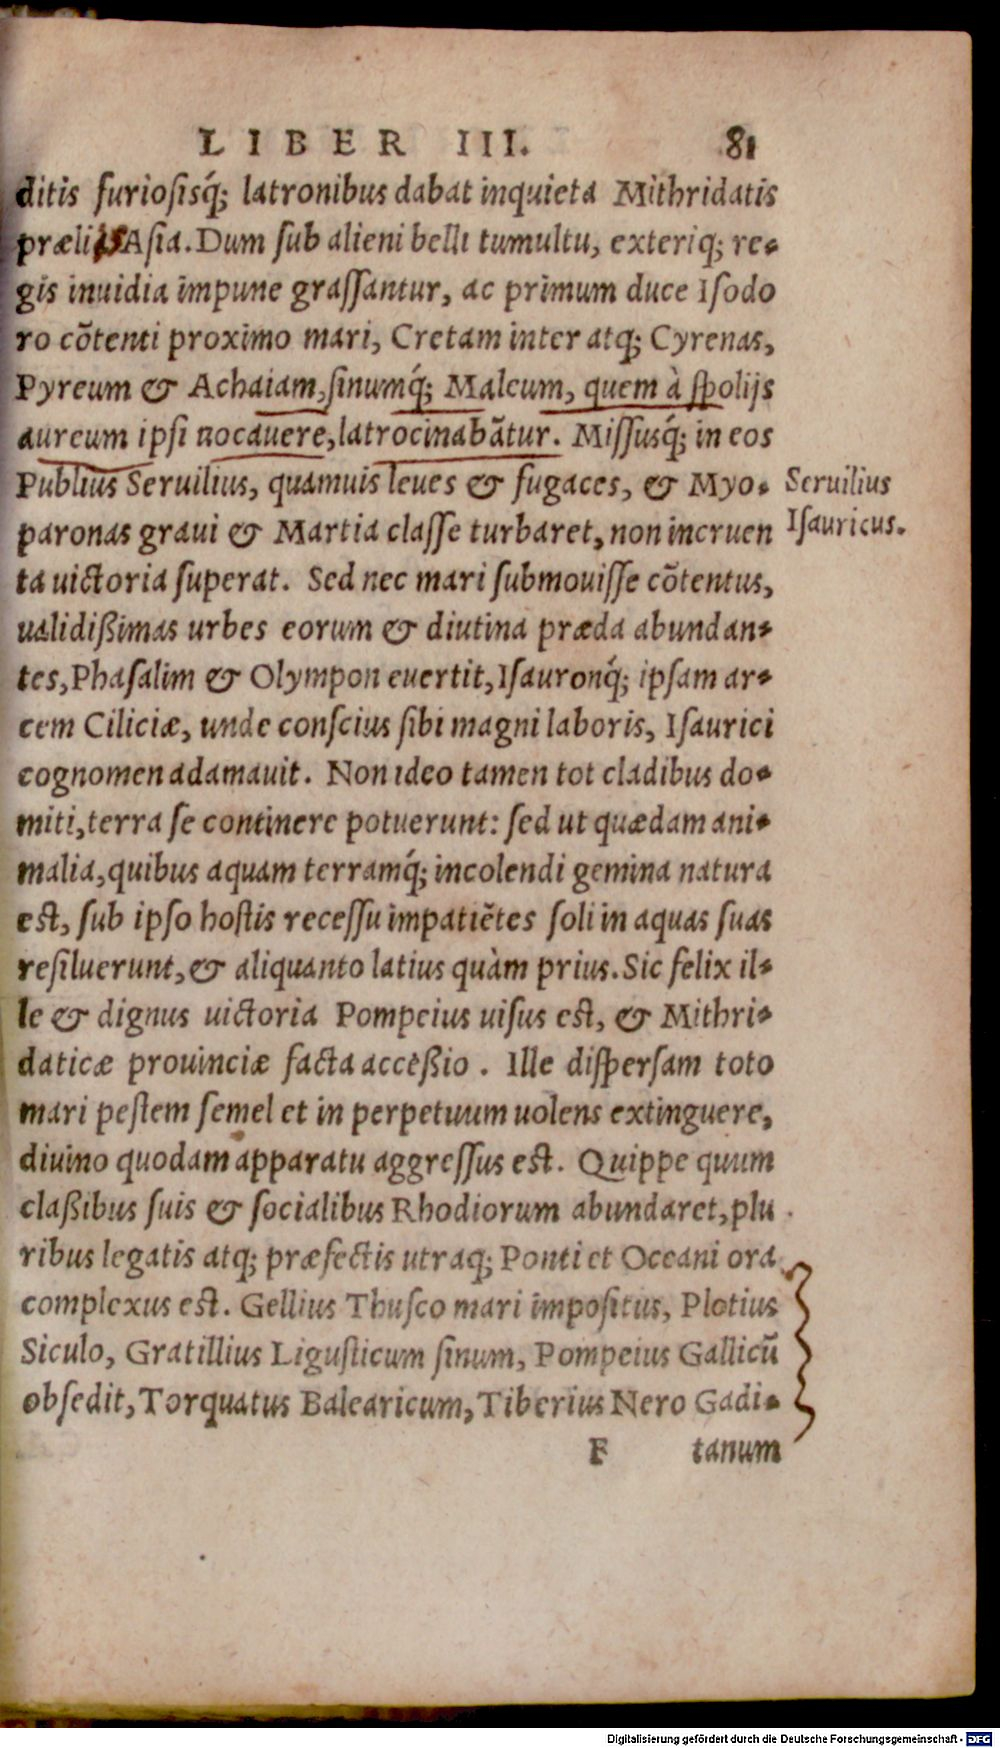 LIBER III. 81
ditis furiosisq́; latronibus dabat inquieta Mithridatis
prælijs Asia. Dum sub alieni belli tumultu, exteriq; re-
gis inuidia impune grassantur, ac primum duce Isodo
ro cōtenti proximo mari, Cretam inter atq; Cyrenas,
Pyreum & Achaiam, sinumq́; Maleum, quem à spolijs
aureum ipsi nocauere, latrocinabātur. Missusq́; in eos
Publius Seruilius, quamuis leues & fugaces, & Myo-
Seruilius
paronas graui & Martia classe turbaret, non incruen
Isauricus.
ta uictoria superat. Sed nec mari submouisse cōtentus,
ualidißimas urbes eorum & diutina præda abundan-
tes, Phasalim & Olympon euertit, Isauronq́; ipsam ar-
cem Ciliciæ, unde conscius sibi magni laboris, Isaurici
cognomen adamauit. Non ideo tamen tot cladibus do-
miti, terra se continere potuerunt: sed ut quædam ani-
malia, quibus aquam terramq́; incolendi gemina natura
est, sub ipso hostis recessu impatiētes soli in aquas suas
resiluerunt, & aliquanto latius quàm prius. Sic felix il-
le & dignus uictoria Pompeius uisus est, & Mithri-
daticæ prouinciæ facta acceßio. Ille dispersam toto
mari pestem semel et in perpetuum uolens extinguere,
diuino quodam apparatu aggressus est. Quippe quum
claßibus suis & socialibus Rhodiorum abundaret, plu
ribus legatis atq; præfectis utraq; Ponti et Oceani ora
complexus est. Gellius Thusco mari impositus, Plotius
Siculo, Gratillius Ligusticum sinum, Pompeius Gallicū
obsedit, Torquatus Balearicum, Tiberius Nero Gadi-
F tanum
Digitalisierung gefördert durch die Deutsche Forschungsgemeinschaft - DFG